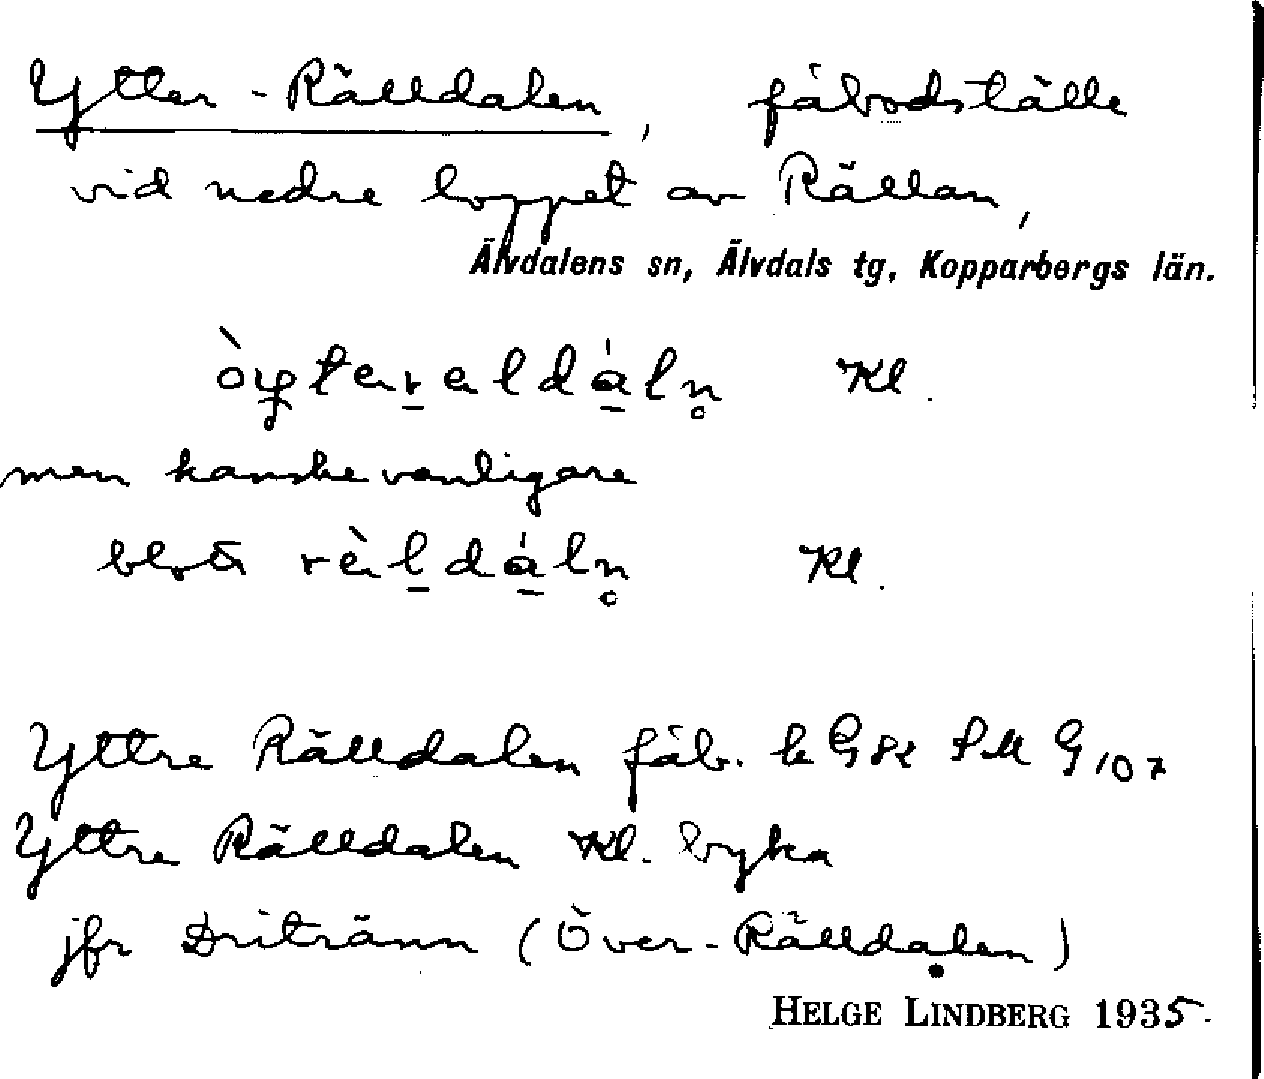 Ytter-Rälldalen, fäbodställe
vid nedre loppet av Rällan,
Älvdalens sn, Älvdals tg, Kopparbergs län.
Kl.
men kanske vanligare
blott rèldáln̥ Kl.
Yttre Rälldalen fäb. k G8t SM G107
Yttre Rälldalen Kl. byka
jfr Dritränn (Över-Rälldalen)
HELGE LINDBERG 1935.